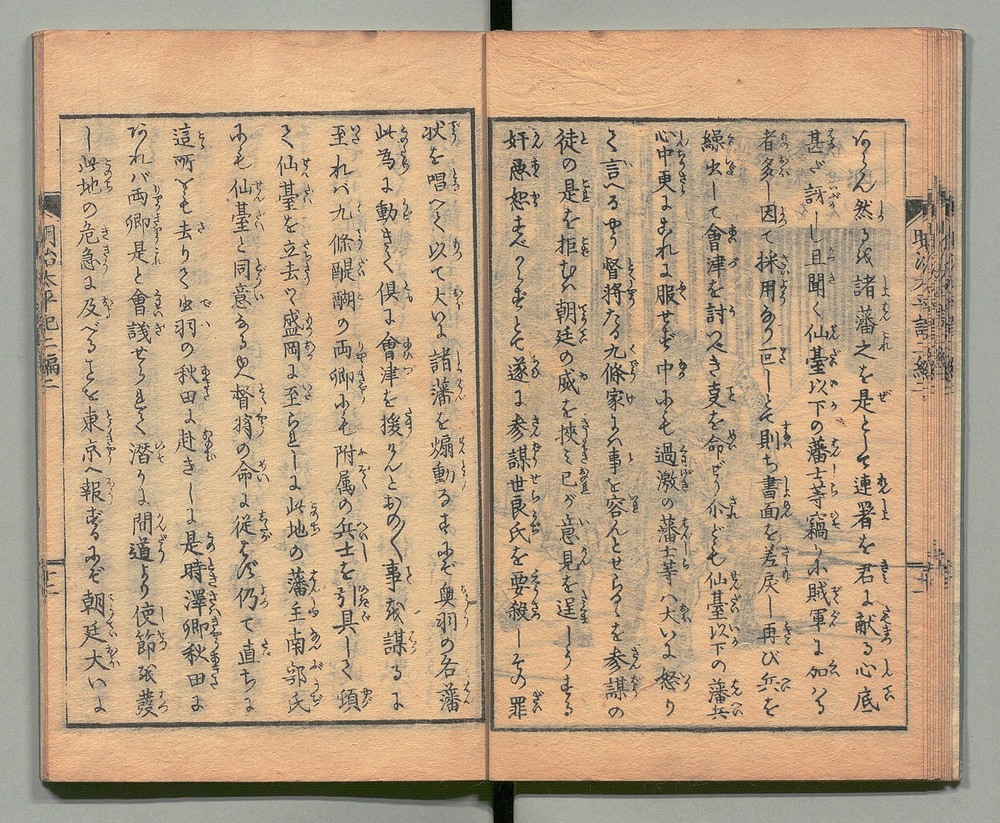 あらん然るを諸藩之を是として連署を君に献る心底
甚だ訝し且聞く仙臺以下の藩士等竊に賊軍に加はる
者多し因て採用あり回しとて則ち書面を差戻し再び兵を
繰出して會津を討つべき事を命ぜらるゝ仙臺以下の藩兵
心中更にこれに服せず中にも過激の藩士等ハ大いに怒り
言へるやう督将たる九條家ハ事を容んとせらるゝを参謀の
徒の是を拒むハ朝廷の威を挾み己が意見を逞しうする
奸悪恕すべからずとて遂に参謀世良氏を要殺しその罪
状を唱へ以て大いに諸藩を煽動するにぞ奥羽の各藩
此為に動き倶に會津を援けんとおの〳〵事を謀るに
至れバ九條醍醐の両卿にも附属の兵士を引具して頓
て仙臺を立去つ盛岡に至られしに此地の藩主南部氏
にも仙臺と同意なるゆゑ督将の命に従はず仍て直ちに
這所をも去りて出羽の秋田に赴きしに是時澤卿秋田に
あれバ両卿是と會議せられて潜かに間道より使節を發
し此地の危急に及べることを東京へ報ずるにぞ朝廷大いに
明治太平記二編二
十二